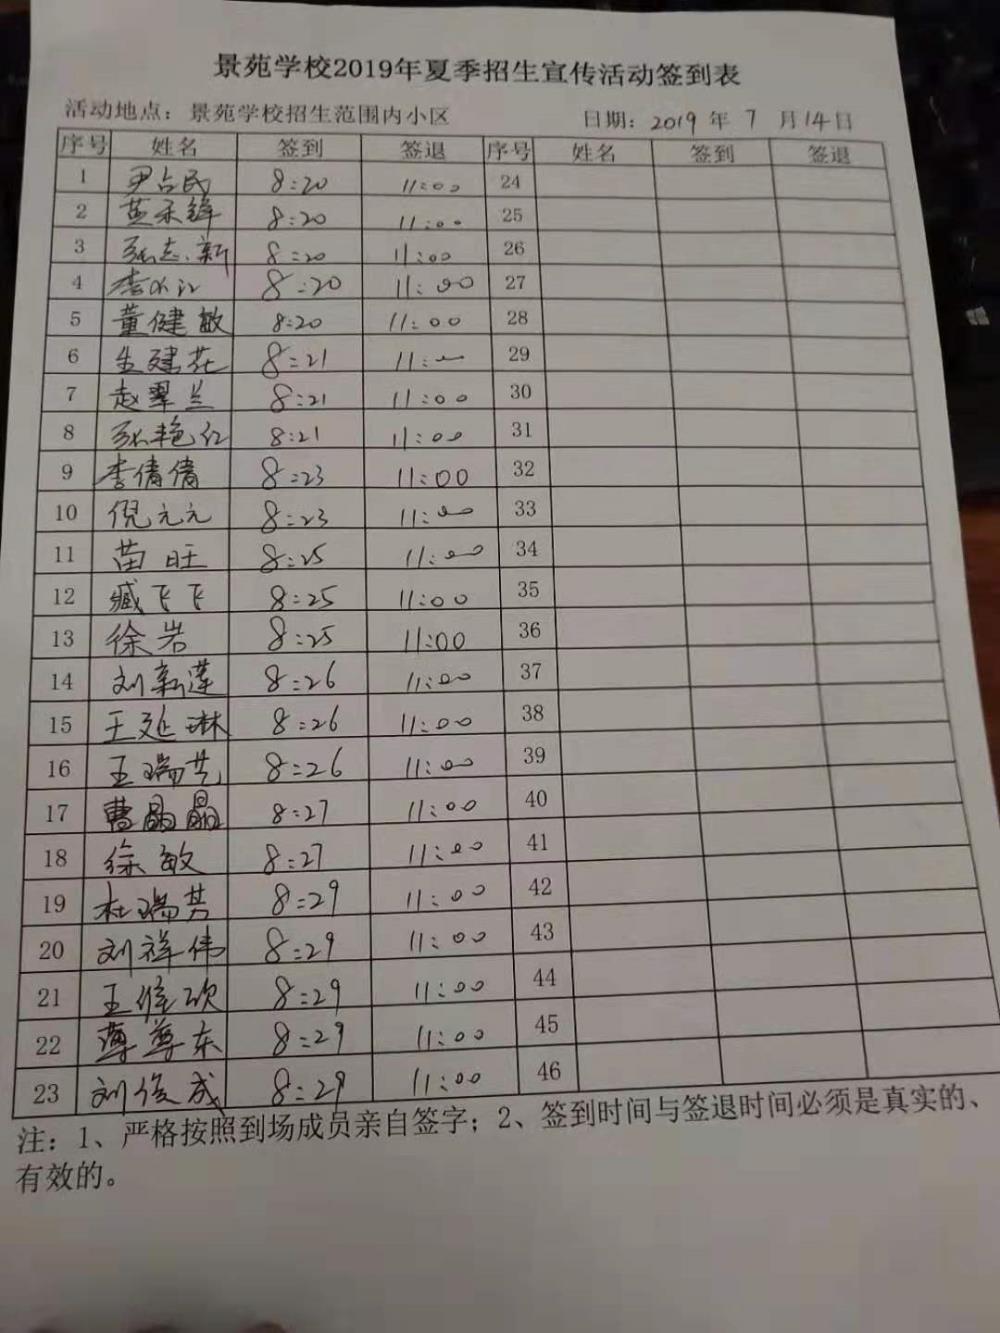 景苑学校2019年夏季招生宣传活动签到表
活动地点：景苑学校招生范围内小区 日期：2019年7月14日
序号 姓名 签到 签退 序号 姓名 签到 签退
1 尹占民 8:20 11:00 24
2 黄承锋 8:20 11:00 25
3 张志新 8:20 11:00 26
4 李小江 8:20 11:00 27
5 董健敏 8:20 11:00 28
6 生建花 8:21 11:00 29
7 赵翠兰 8:21 11:00 30
8 张艳红 8:21 11:00 31
9 李倩倩 8:23 11:00 32
10 倪元元 8:23 11:00 33
11 苗旺 8:25 11:00 34
12 臧飞飞 8:25 11:00 35
13 徐岩 8:25 11:00 36
14 刘新莲 8:26 11:00 37
15 王延琳 8:26 11:00 38
16 王瑞芝 8:26 11:00 39
17 曹晶晶 8:27 11:00 40
18 徐敏 8:27 11:00 41
19 杜瑞芳 8:29 11:00 42
20 刘祥伟 8:29 11:00 43
21 王维欣 8:29 11:00 44
22 薄尊东 8:29 11:00 45
23 刘俊成 8:29 11:00 46
注：1、严格按照到场成员亲自签字；2、签到时间与签退时间必须是真实的、
有效的。